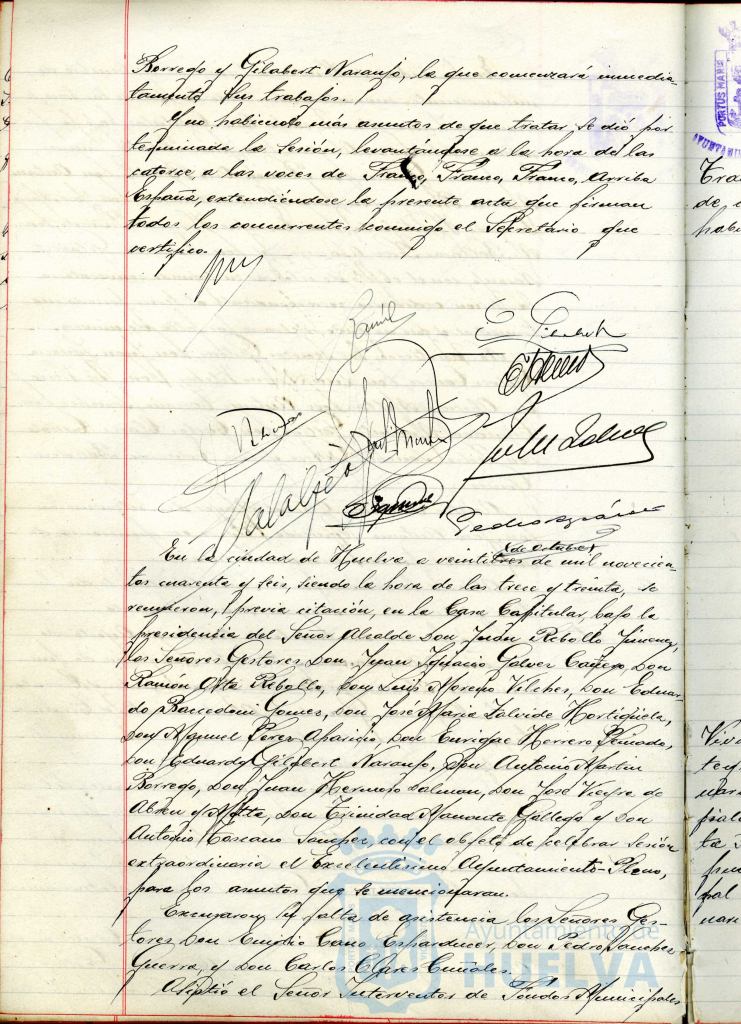 Borrego y Gilabert Naranjo, la que comenzará inmedia-
tamente sus trabajos.
Y no habiendo más asuntos de que tratar, se dió por
terminada la sesión, levantándose a la hora de las
catorce, a las voces de Franco, Franco, Franco, Arriba
España, extendiéndose la presente acta que firman
todos los concurrentes conmigo el Secretario que
certifico.
de Octubre
En la ciudad de Huelva a veintitres de mil novecien-
tos cuarenta y seis, siendo la hora de las trece y treinta, se
reunieron, previa citación, en la Casa Capitular, bajo la
presidencia del Señor Alcalde Don Juan Rebollo Jimenez,
los Señores Gestores Don Juan Ignacio Galvez Cañego, Don
Ramón Rebollo, Don Luis Moreno Vilches, Don Eduar-
do Gomez, Don José Maria Zalvide Hortigüela,
Don Manuel Perez Aparicio, Don Enrique Herrero Peinado,
Don Eduardo Gilabert Naranjo, Don Antonio Martin
Borrego, Don Juan Hermoso Dalman, Don José de
Abreu y Motta, Don Trinidad Gallego y Don
Antonio Toscano Sanchez, con el objeto de celebrar sesión
extraordinaria el Excelentisimo Ayuntamiento-Pleno,
para los asuntos que se mencionaran.
Excusaron su falta de asistencia los Señores Ges-
tores Don Emilio Cano Don Pedro Sanchez
Guerra, y Don Carlos
Asistió el Señor Interventor de Fondos Municipales
Ayuntamiento de
HUELVA
PORTUS MARIS